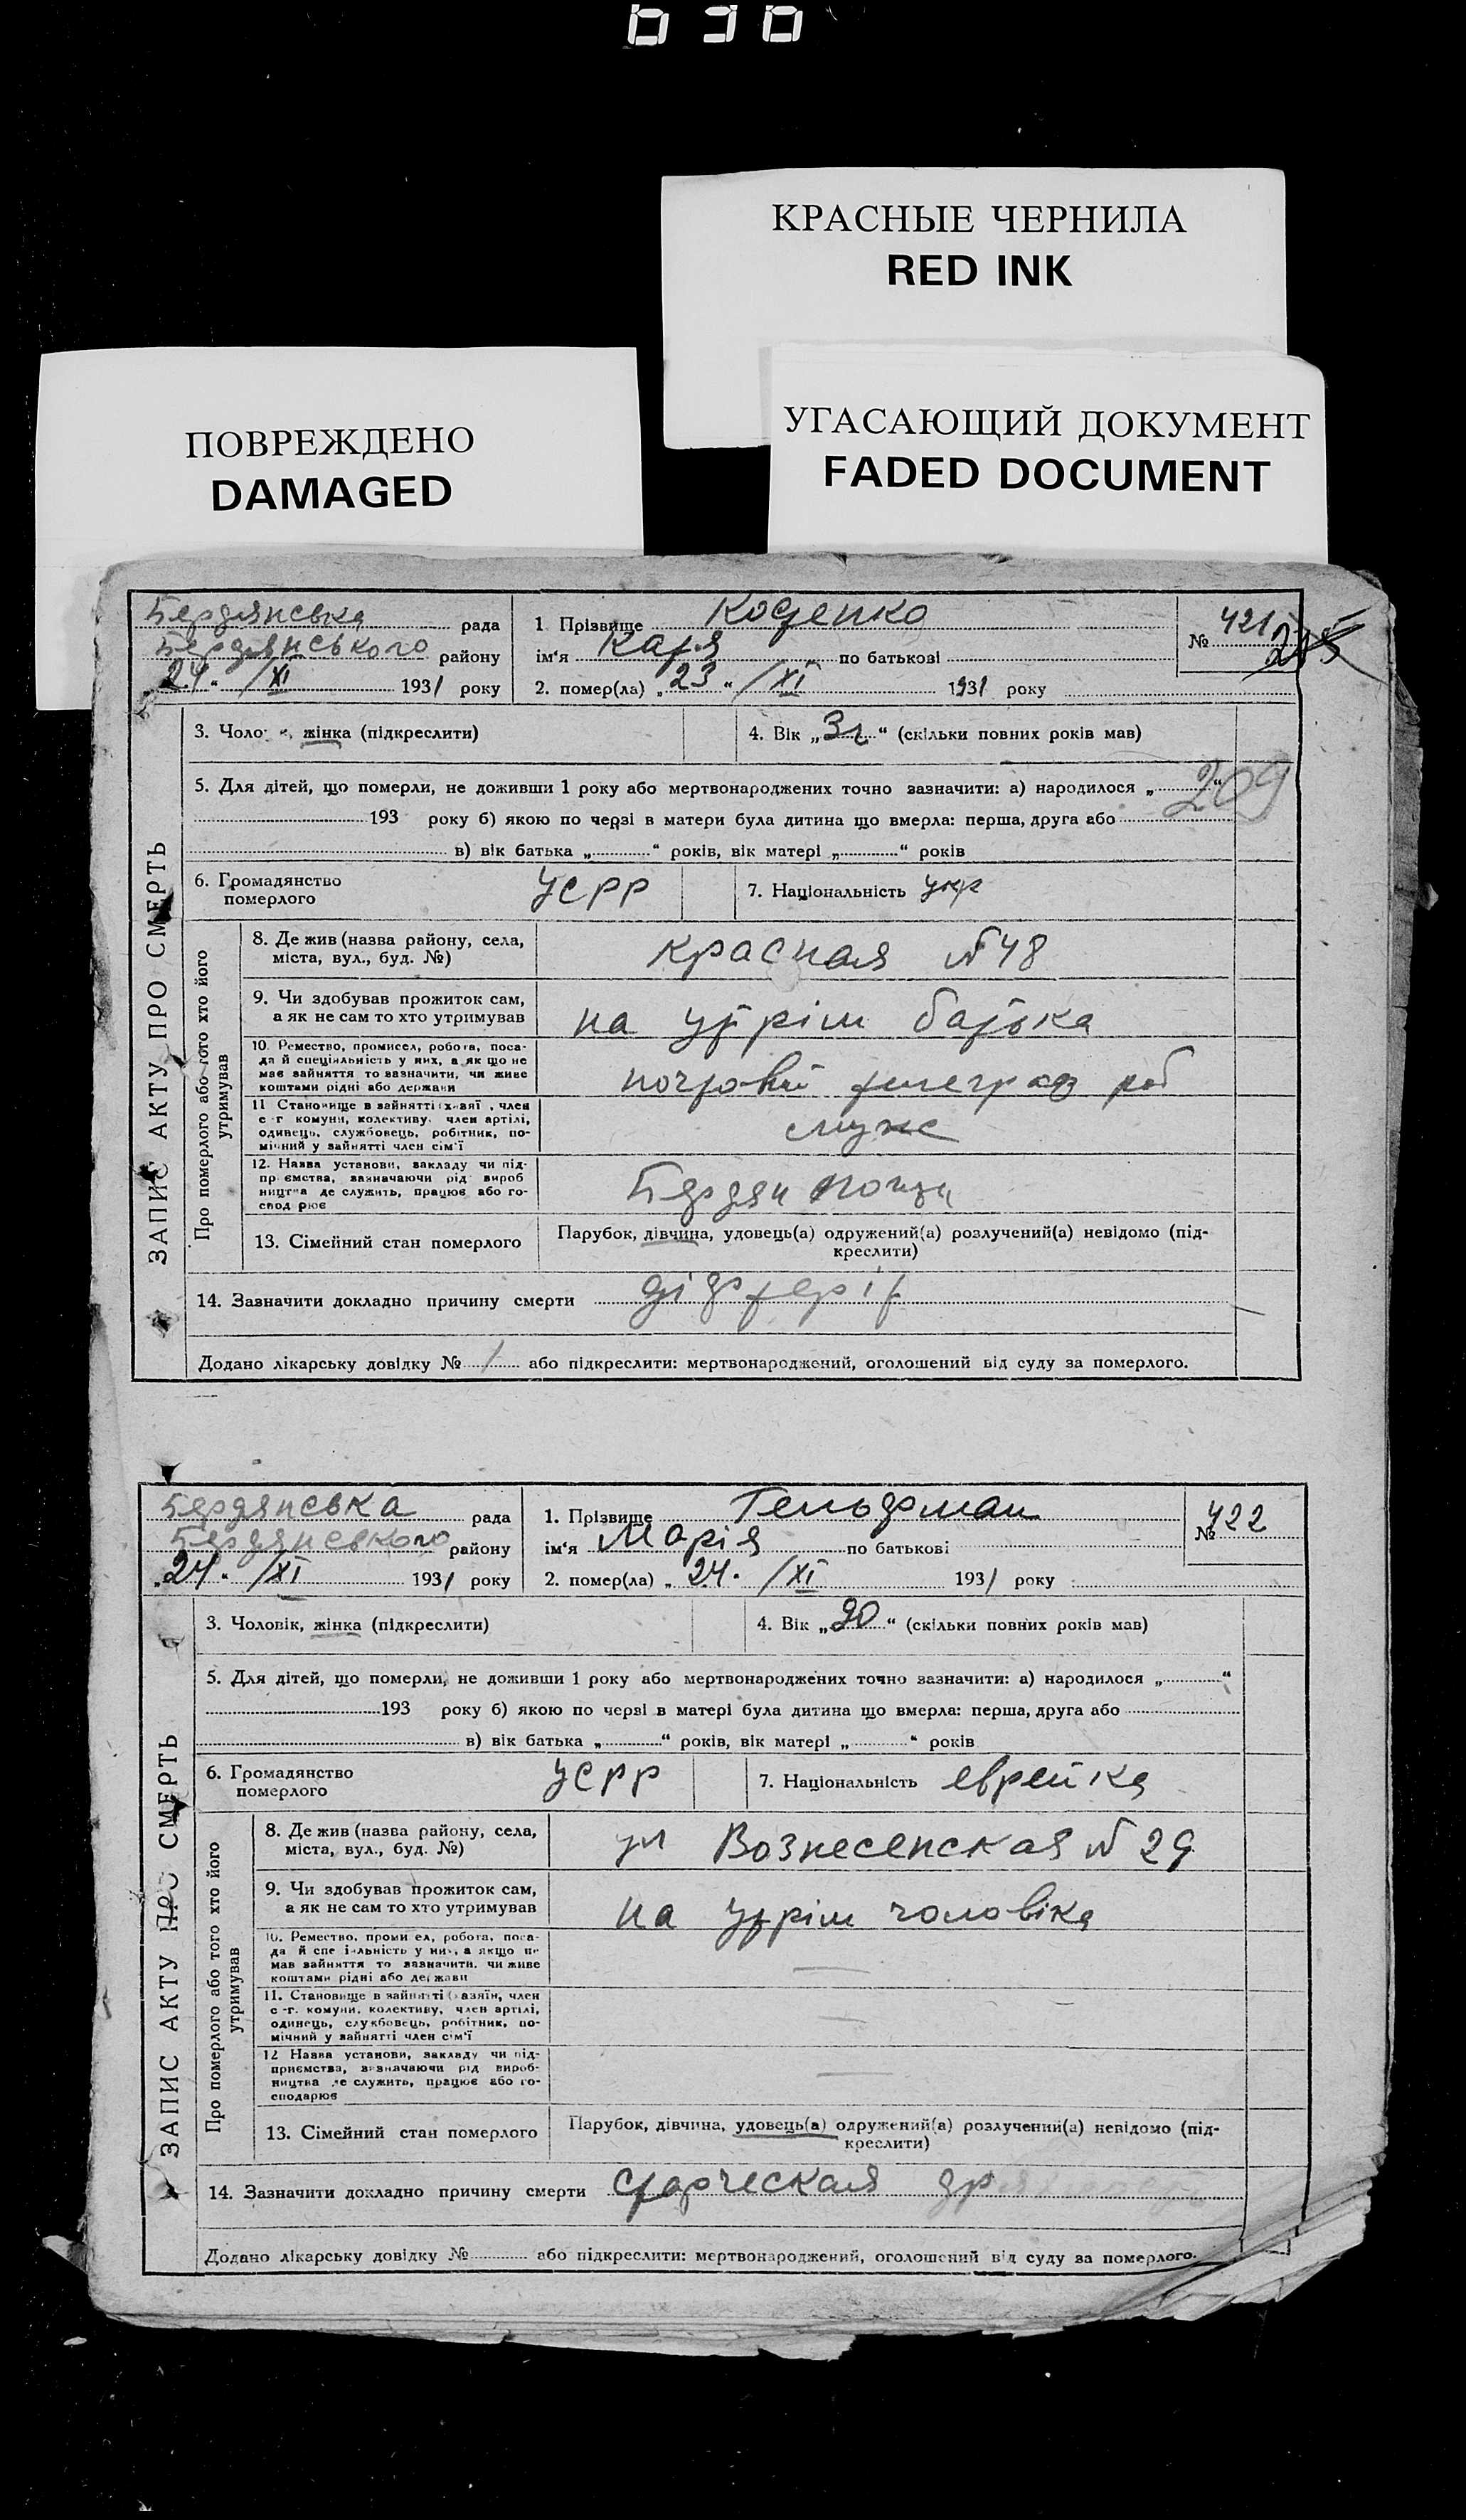 КРАСНЫЕ ЧЕРНИЛА
RED INK
ПОВРЕЖДЕНО
DAMAGED
УГАСАЮЩИЙ ДОКУМЕНТ
FADED DOCUMENT
ЗАПИС АКТУ ПРО СМЕРТЬ
Бердянська рада
Бердянського району
„24“ /XI 1931 року
1 Прізвище Коценко
ім‘я Катя по батькові
2. помер(ла) „23“ /XI 1931 року
№ 421
3. жінка (підкреслити)
4. Вік „3г“ (скільки повних років мав)
209
5. Для дітей, що померли, не доживши 1 року або мертвонароджених точно зазначити: а) народилося „
193 року б) якою по черзі в матери була дитина що вмерла: перша, друга або
в) вік батька „ “ років, вік матері „ “ років
6. Громадянство
померлого
УСРР
7. Національність укр
Про померлого або того хто його
утримував
8. Де жив (назва району, села,
міста, вул., буд. №)
Красная №48
9. Чи здобував прожиток сам,
а як не сам то хто утримував
на утрім батька
10. Ремество, промисел, робота, поса-
да й спеціяльність у них, а як що не
має зайняття то зазначити, чи живе
коштами рідні або держави
11 Становище в зайнятті , член
с-г комуни, колективу, член артілі,
одинець, службовець, робітник, по-
мічний у зайнятті член сім‘ї
служ
12. Назва установи, закладу чи під-
приємства, зазначаючи рід вироб
ництва де служить, працює або го-
сподарює
Бердян
13. Сімейний стан померлого
Парубок, дівчина, удовець(а) одружений(а) розлучений(а) невідомо (під-
креслити)
14. Зазначити докладно причину смерти дідртеріт
Додано лікарську довідку № / або підкреслити: мертвонароджений, оголошений від суду за померлого.
ЗАПИС АКТУ ПРО СМЕРТЬ
Бердянська рада
Бердянського району
„24“ /XI 1931 року
1. Прізвище Гельдман
ім‘я Марія по батькові
2. помер(ла) „24“ /XI 1931 року
№ 422
3. Чоловік, жінка (підкреслити)
4. Вік „90“ (скільки повних років мав)
5. Для дітей, що померли, не доживши 1 року або мертвонароджених точно зазначити: а) народилося „ “
193 року б) якою по черзі в матері була дитина що вмерла: перша, друга або
в) вік батька „ “ років, вік матері „ “ років
6. Громадянство
померлого
УСРР
7. Національність еврейка
Про померлого або того хто його
утримував
8. Де жив (назва району, села,
міста, вул., буд. №)
ул Вознесенская № 29
9. Чи здобував прожиток сам,
а як не сам то хто утримував
на утрім чоловіка
10. Ремество, промисел, робота, поса-
да й спеціяльність у них, а якщо не
мав зайняття то зазначити, чи живе
коштами рідні або держави
11. Становище в зайнятті (хазяїн, член
с-г. комуни, колективу, член артілі,
одинець, службовець, робітник, по-
мічний у зайнятті член сім‘ї
12 Назва установи, закладу чи під-
приємства, зазначаючи рід вироб-
ництва де служить, працює або го-
сподарює
13. Сімейний стан померлого
Парубок, дівчина, удовець(а) одружений(а) розлучений(а) невідомо (під-
креслити)
14. Зазначити докладно причину смерти старческая др
Додано лікарську довідку № або підкреслити: мертвонароджений, оголошений від суду за померлого.